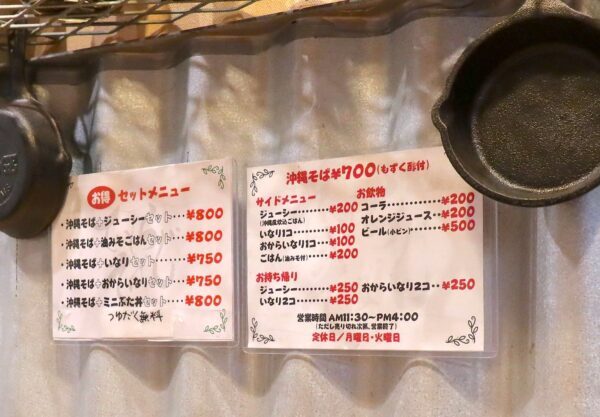 お得 セットメニュー
・沖縄そば+ジューシーセット・・・¥800
・沖縄そば+油みそごはんセット・・¥800
・沖縄そば+いなりセット・・・・¥750
・沖縄そば+おからいなりセット・・¥750
・沖縄そば+ミニぶた丼セット・・・・¥800
つゆだく無料
沖縄そば¥700(もずく酢付)
サイドメニュー
ジューシー・・・・・・・・・¥200
(沖縄風炊込ごはん)
いなり1コ・・・・・・・・・¥100
おからいなり1コ・・・・¥100
ごはん(油みそ付)・・・・¥200
お飲物
コーラ・・・・・・・・・・・¥200
オレンジジュース・・・¥200
ビール(小ビン)・・・・・¥500
お持ち帰り
ジューシー・・・・・・・・・¥250
いなり2コ・・・・・・・・・¥250
おからいなり2コ・・¥250
営業時間 AM11:30~PM4:00
(ただし売り切れ次第、営業終了)
定休日/月曜日・火曜日